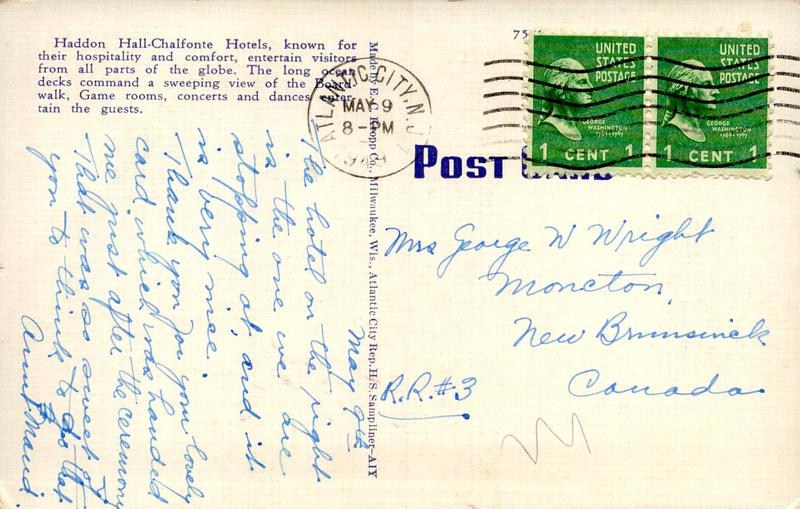 Haddon Hall-Chalfonte Hotels, known for
their hospitality and comfort, entertain visitors
from all parts of the globe. The long ocean
decks command a sweeping view of the Board-
walk, Game rooms, concerts and dances enter-
tain the guests.
May 9th
The hotel on the right
is the one we are
stopping at, and it
is very nice.
Thank you for your lovely
card, which was handed
me just after the ceremony
That was as sweet of
you to think to do that
Aunt Maud.
Made by E. C. Kropp Co., Milwaukee, Wis., Atlantic City Rep. H. S. Sampliner-AIY
75
ATLANTIC CITY, N.J.
MAY 9
8-PM
UNITED
STATES
POSTAGE
GEORGE
WASHINGTON
1789-1797
1 CENT 1
UNITED
STATES
POSTAGE
GEORGE
WASHINGTON
1789-1797
1 CENT 1
POST CARD
Mrs George W Wright
Moncton,
New Brunswick
Canada
R.R.#3